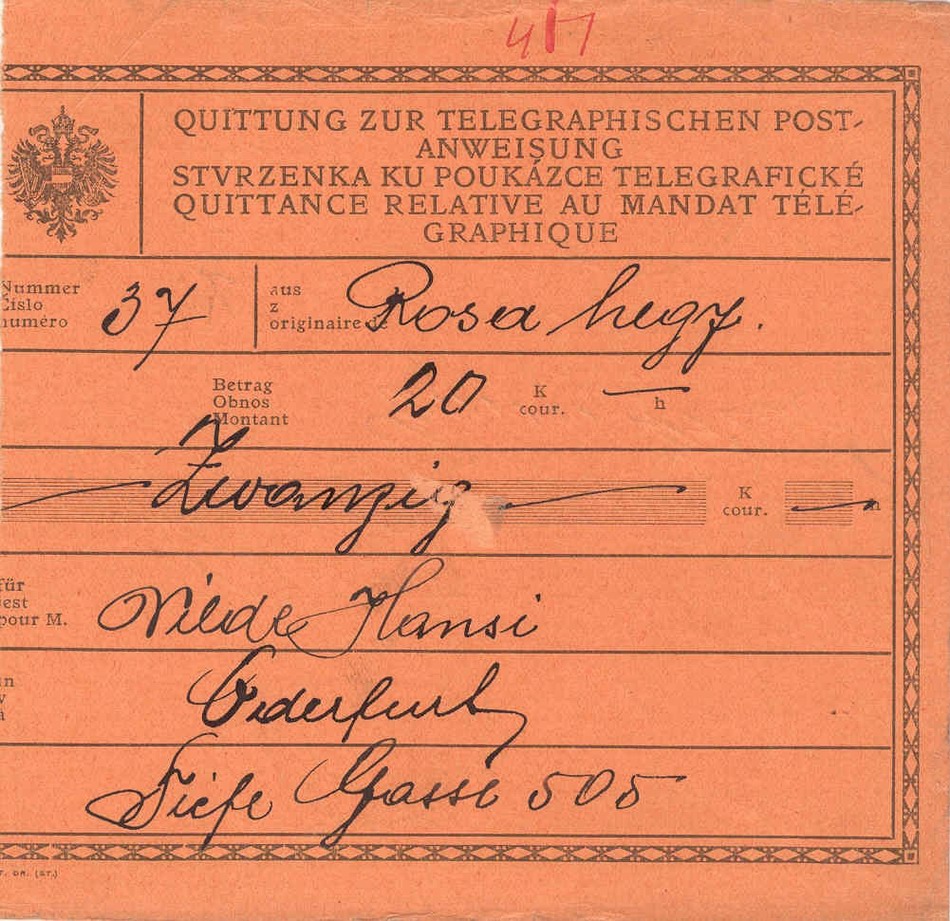 QUITTUNG ZUR TELEGRAPHISCHEN POST-
ANWEISUNG
STVRZENKA KU POUKÁZCE TELEGRAFICKÉ
QUITTANCE RELATIVE AU MANDAT TÉLÉ-
GRAPHIQUE
Nummer
Číslo
numéro
37
aus
z
originaire de
Rosa hegy.
Betrag
Obnos
Montant
20
K
cour.
—
h
Zwanzig
K
cour.
h
für
jest
pour M.
Vilde Hansi
in
v
à
Oderfurt
Tiefe Gasse 505